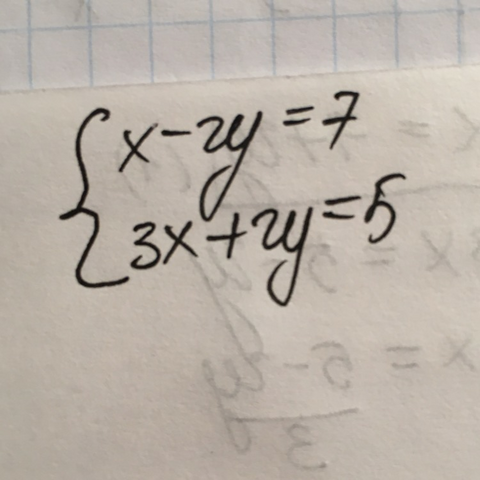 x-2y=7
3x+2y=5